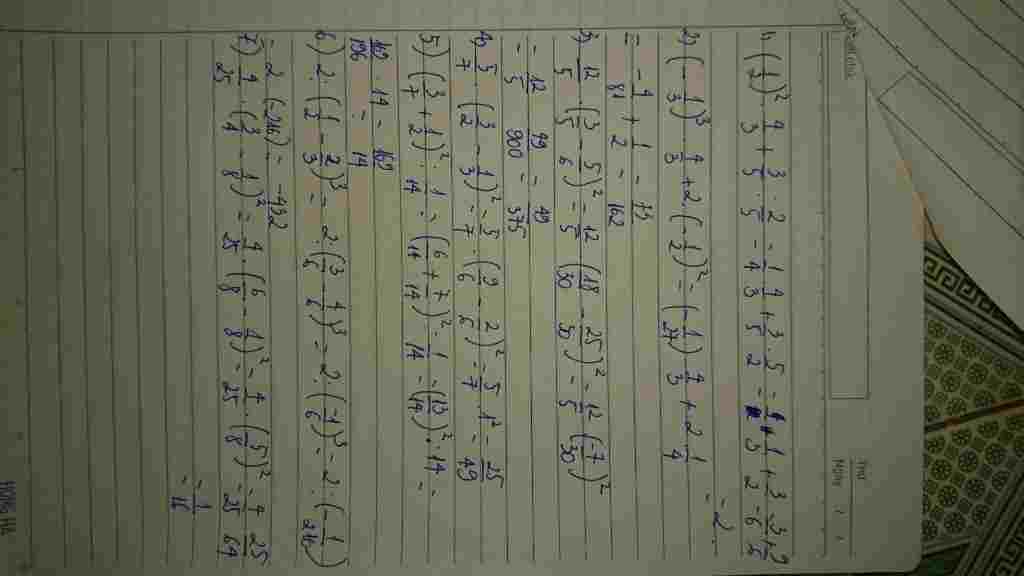 Thứ
Ngày
1) (1/2)² · 4/3 + 3/5 : 2/5 = 1/4 · 4/3 + 3/5 · 5/2 = 1/3 + 3/2 = 2/6 + 9/6
2) (-1/3)³ · 4/3 + 2 (-1/2)² = (-1/27) · 4/3 + 2 · 1/4
= -4/81 + 1/2 = 73/162
3) 12/5 · (3/5 - 5/6)² = 12/5 (18/30 - 25/30)² = 12/5 (7/30)²
= 12/5 · 49/900 = 49/375
4) 5/7 · (3/2 - 1/3)² = 5/7 · (9/6 - 2/6)² = 5/7 · 1² = 25/49
5) (3/7 + 1/2)² : 1/14 = (6/14 + 7/14)² : 1/14 = (13/14)² · 14 =
169/196 · 14 = 169/14
6) 2 : (1/2 - 2/3)³ = 2 : (3/6 - 4/6)³ = 2 : (-1/6)³ = 2 : (-1/216)
= 2 · (-216) = -432
7) 4/25 · (3/4 - 1/8)² = 4/25 · (6/8 - 1/8)² = 4/25 · (5/8)² = 4/25 · 25/64
= 1/16
HONG HA